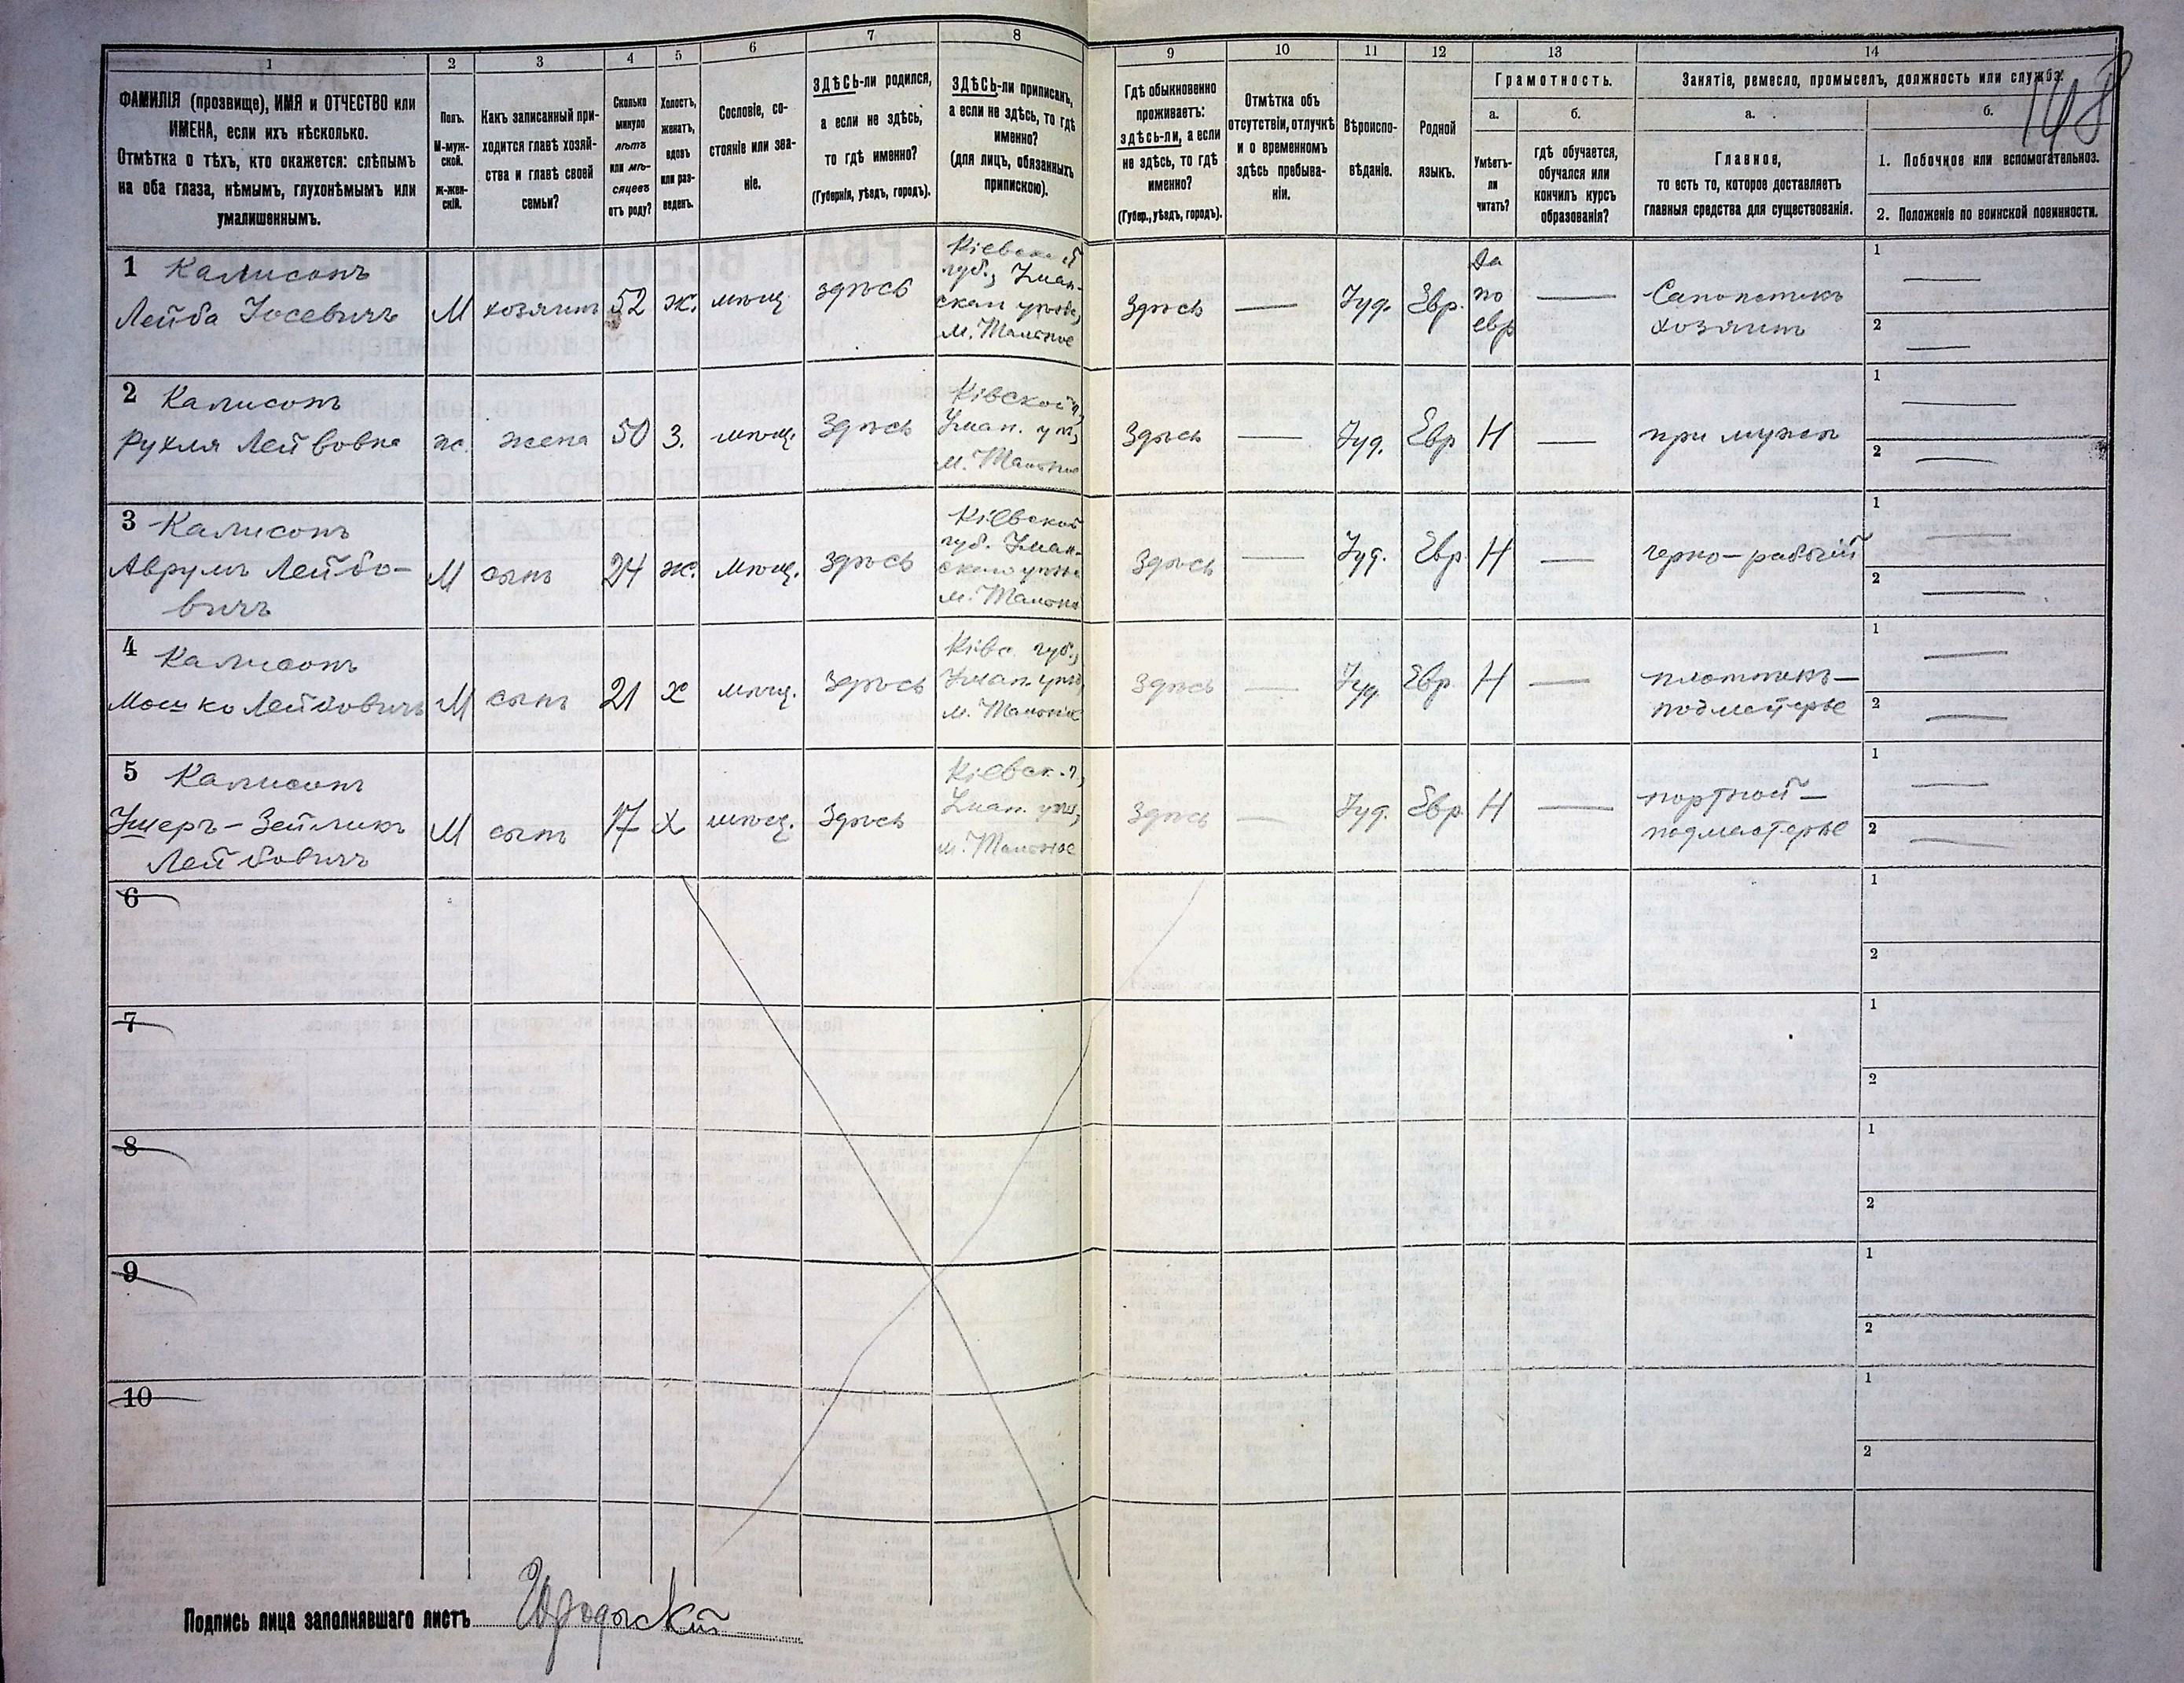 1
2
3
4
5
6
7
8
9
10
11
12
13
14
ФАМИЛІЯ (прозвище), ИМЯ и ОТЧЕСТВО или
ИМЕНА, если ихъ нѣсколько.
Отмѣтка о тѣхъ, кто окажется: слѣпымъ
на оба глаза, нѣмымъ, глухонѣмымъ или
умалишеннымъ.
Полъ.
М-муж-
ской.
Ж-жен-
скій.
Какъ записанный при-
ходится главѣ хозяй-
ства и главѣ своей
семьи?
Сколько
минуло
лѣтъ
или мѣ-
сяцевъ
отъ роду?
Холостъ,
женатъ,
вдовъ
или раз-
веденъ.
Сословіе, со-
стояніе или зва-
ніе.
ЗДѢСЬ-ли родился,
а если не здѣсь,
то гдѣ именно?
(Губернія, уѣздъ, городъ).
ЗДѢСЬ-ли приписанъ,
а если не здѣсь, то гдѣ
именно?
(для лицъ, обязанныхъ
припискою).
Гдѣ обыкновенно
проживаетъ:
здѣсь-ли, а если
не здѣсь, то гдѣ
именно?
(Губер., уѣздъ, городъ).
Отмѣтка объ
отсутствіи, отлучкѣ
и о временномъ
здѣсь пребыва-
ніи.
Вѣроиспо-
вѣданіе.
Родной
языкъ.
Грамотность.
а.
Умѣетъ-
ли
читать?
б.
гдѣ обучается,
обучался или
кончилъ курсъ
образованія?
Занятіе, ремесло, промыселъ, должность или служба.
148
а.
Главное,
то есть то, которое доставляетъ
главныя средства для существованія.
б.
1. Побочное или вспомогательное.
2. Положеніе по воинской повинности.
1 Калисонъ
Лейба Іосевичъ
М
хозяинъ
52
ж.
мѣщ
здѣсь
Кіевской
губ., Уман-
скаго уѣзда,
м. Тальное
Здѣсь
—
Іуд.
Евр.
Да
по
евр
—
Сапожникъ
хозяинъ
1 —
2 —
2 Калисонъ
Рухля Лейбовна
ж.
жена
50
З.
мѣщ.
Здѣсь
Кіевской г.,
Уман. у.,
м. Тальное
Здѣсь
—
Іуд.
Евр
Н
—
при мужѣ
1 —
2 —
3 Калисонъ
Аврумъ Лейбо-
вичъ
М
сынъ
24
ж.
мѣщ.
здѣсь
Кіевской
губ. Уман-
скаго уѣзда
м. Тальное
Здѣсь
—
Іуд.
Евр
Н
—
черно-рабочій
1 —
2 —
4 Калисонъ
Мошко Лейбовичъ
М
сынъ
21
х
мѣщ.
Здѣсь
Кіевс. губ.,
Уман. уѣз.,
м. Тальное
Здѣсь
—
Іуд.
Евр
Н
—
плотникъ-
подмастерье
1 —
2 —
5 Калисонъ
Ушеръ-Зейликъ
Лейбовичъ
М
сынъ
17
х
мѣщ.
Здѣсь
Кіевск. г.,
Уман. уѣз.,
м. Тальное
Здѣсь
—
Іуд.
Евр
Н
—
портной-
подмастерье
1 —
2 —
6
1
2
7
1
2
8
1
2
9
1
2
10
1
2
Подпись лица заполнявшаго листъ